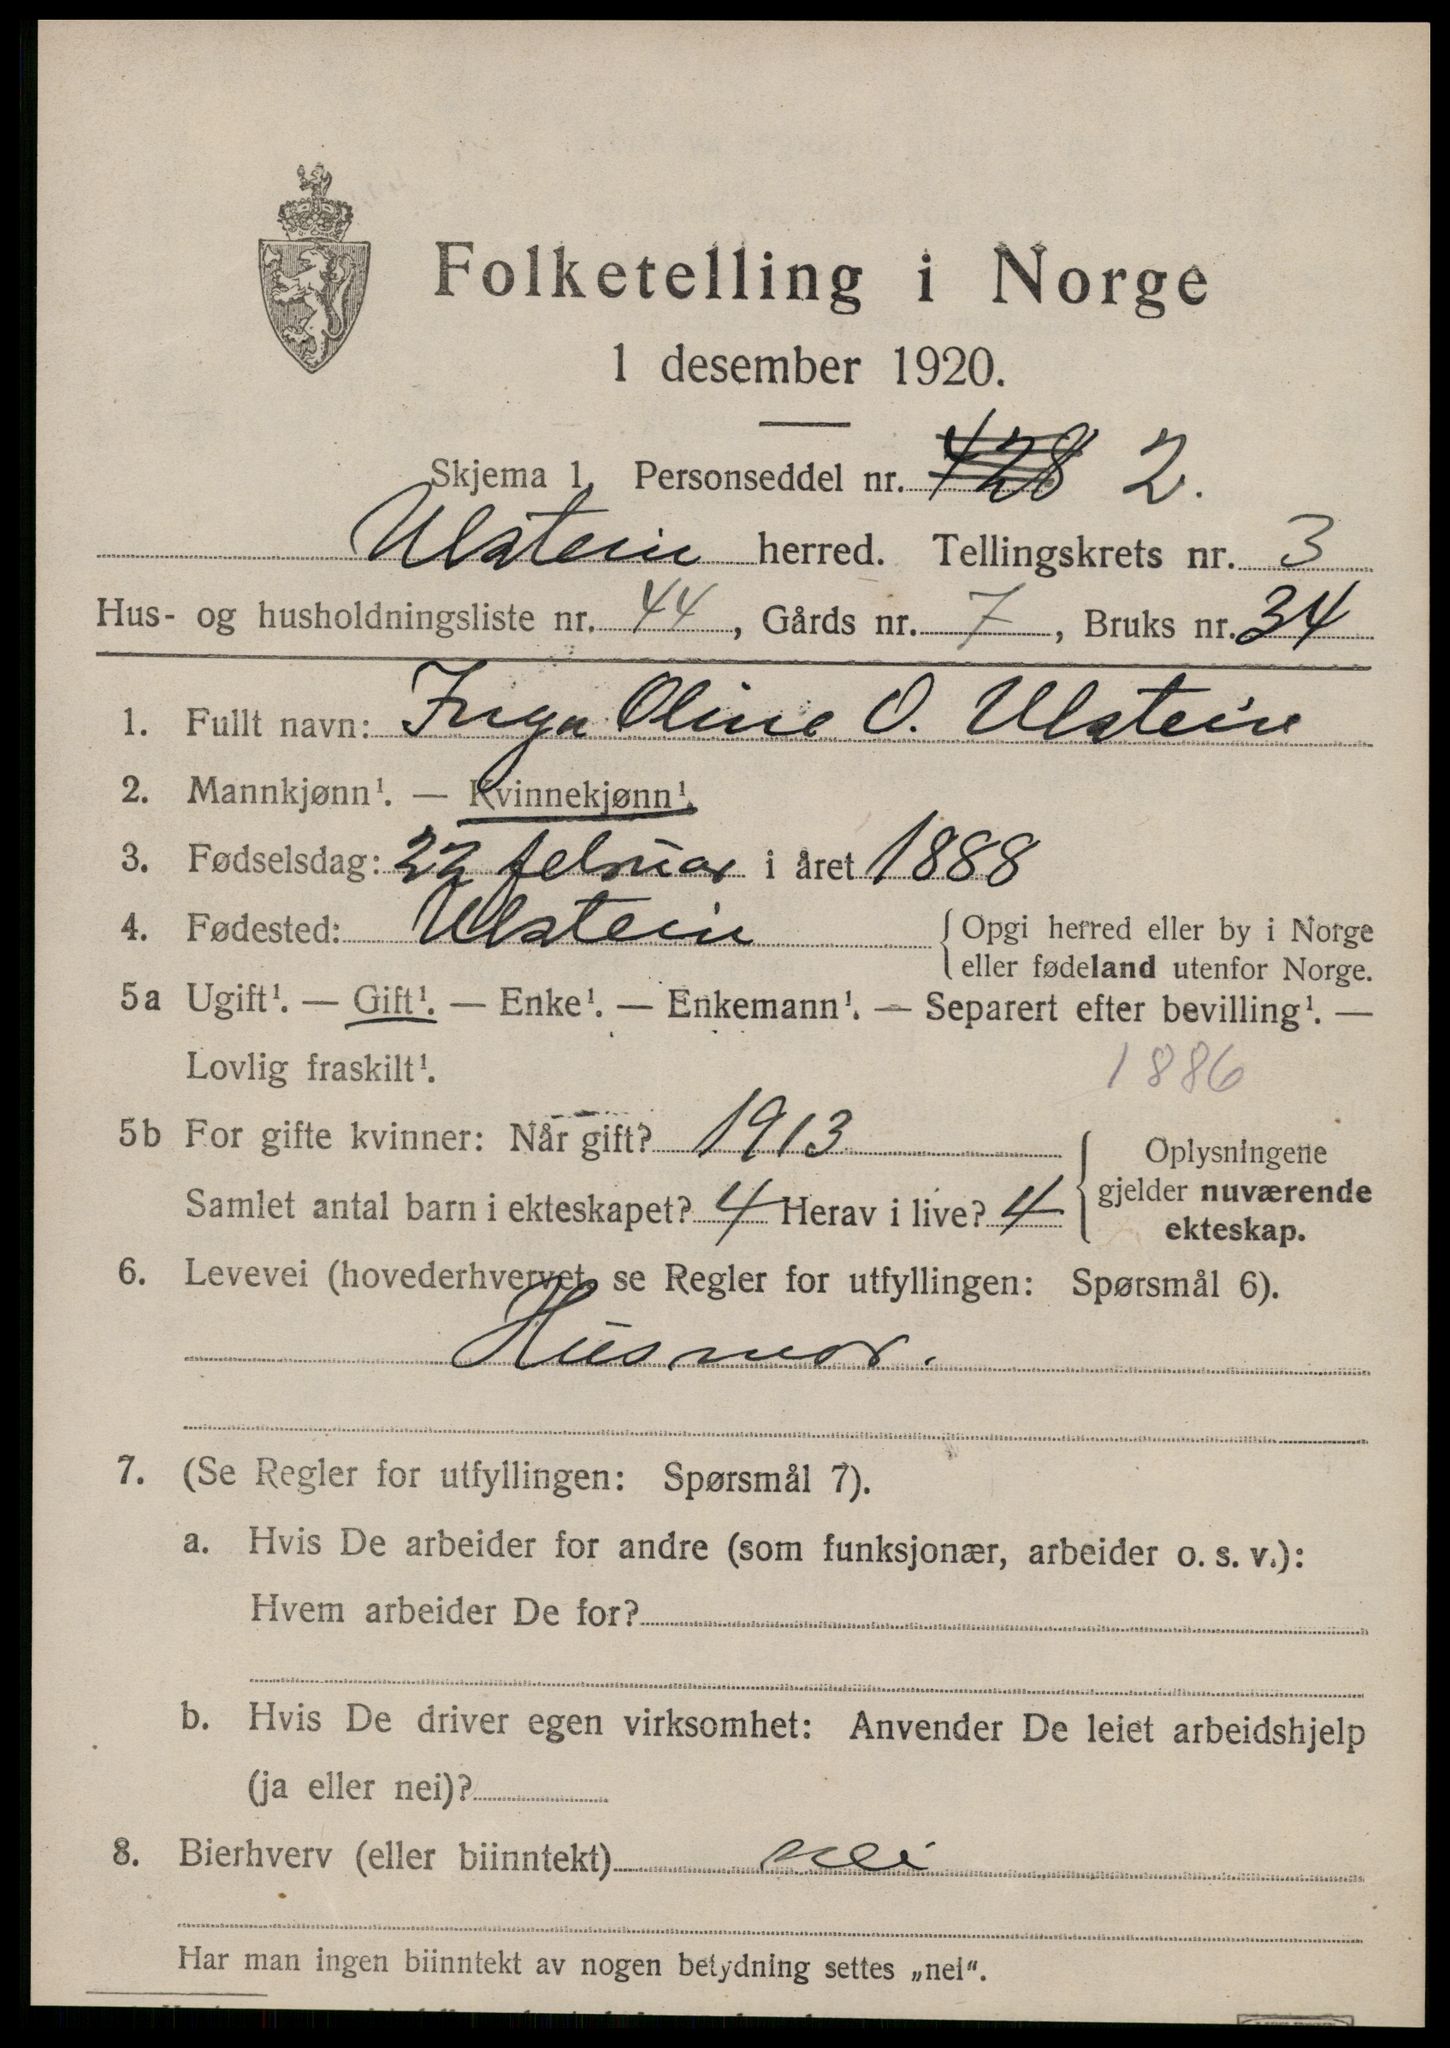 Folketelling i Norge
1 desember 1920.
Skjema 1. Personseddel nr. 428 2.
Ulstein herred. Tellingskrets nr. 3
Hus- og husholdningsliste nr. 44, Gårds nr. 7, Bruks nr. 34
1. Fullt navn: Inga Oline O. Ulstein
2. Mannkjønn¹. — Kvinnekjønn¹.
3. Fødselsdag: 22 februar i året 1888
4. Fødested: Ulstein { Opgi herred eller by i Norge
eller fødeland utenfor Norge.
5a Ugift¹. — Gift¹. — Enke¹. — Enkemann¹. — Separert efter bevilling¹. —
Lovlig fraskilt¹. 1886
5b For gifte kvinner: Når gift? 1913
Samlet antal barn i ekteskapet? 4 Herav i live? 4
Oplysningene
gjelder nuværende
ekteskap.
6. Levevei (hovederhvervet, se Regler for utfyllingen: Spørsmål 6).
Husmor.
7. (Se Regler for utfyllingen: Spørsmål 7).
a. Hvis De arbeider for andre (som funksjonær, arbeider o. s. v.):
Hvem arbeider De for?
b. Hvis De driver egen virksomhet: Anvender De leiet arbeidshjelp
(ja eller nei)?
8. Bierhverv (eller biinntekt) nei
Har man ingen biinntekt av nogen betydning settes „nei“.